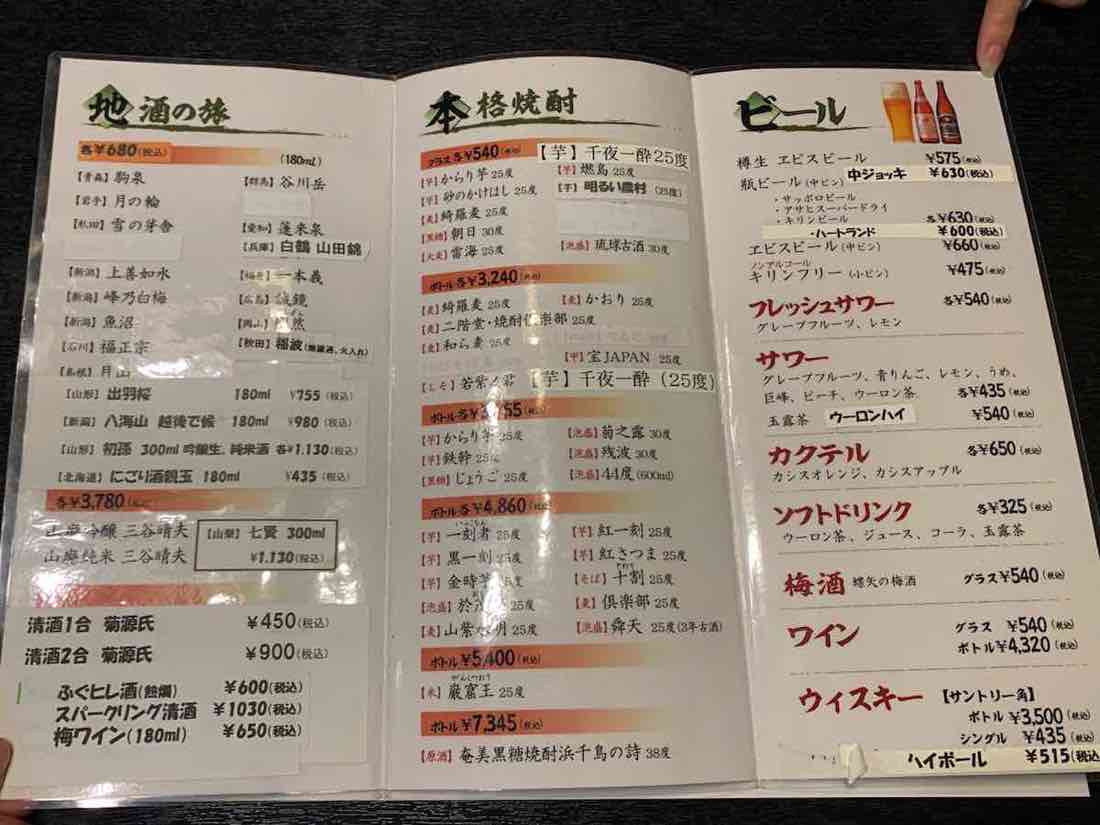 地酒の旅
各¥680(税込) (180mL)
【青森】駒泉
【岩手】月の輪
【秋田】雪の芽舎
【新潟】上善如水
【新潟】峰乃白梅
【新潟】魚沼
【石川】福正宗
【島根】月山
【群馬】谷川岳
【愛知】蓬来泉
【兵庫】白鶴 山田錦
【福井】一本義
【広島】誠鏡
【岡山】
【秋田】稲波
【山形】出羽桜 180ml ¥755(税込)
【新潟】八海山 越後で候 180ml ¥980(税込)
【山形】初孫 300ml 吟醸生、純米酒 各¥1,130(税込)
【北海道】にごり酒親玉 180ml ¥435(税込)
各¥3,780(税込)
山廃吟醸 三谷晴夫
山廃純米 三谷晴夫
【山梨】七賢 300ml
¥1,130(税込)
清酒1合 菊源氏 ¥450(税込)
清酒2合 菊源氏 ¥900(税込)
ふぐヒレ酒(熱燗) ¥600(税込)
スパークリング清酒 ¥1030(税込)
梅ワイン(180ml) ¥650(税込)
本格焼酎
グラス各¥540(税込)
【芋】千夜一酔25度
【芋】からり芋 25度
【芋】砂のかけはし 25度
【麦】綺羅麦 25度
【黒糖】朝日 30度
【大麦】雷海 25度
【芋】燃島 25度
【芋】明るい農村(25度)
【泡盛】琉球古酒 30度
各¥3,240(税込)
【麦】綺羅麦 25度
【麦】二階堂・焼酎倶楽部 25度
【麦】和ら麦 25度
【しそ】若紫ノ君
【麦】かおり 25度
【甲】宝JAPAN 25度
【芋】千夜一酔(25度)
ボトル各 (税込)
【芋】からり芋 25度
【芋】鉄幹 25度
【黒糖】じょうご 25度
【泡盛】菊之露 30度
【泡盛】残波 30度
【泡盛】44度(600ml)
ボトル各¥4,860(税込)
【芋】一刻者 25度
【芋】黒一刻 25度
【芋】金時芋 25度
【泡盛】 25度
【麦】山紫水明 25度
【芋】紅一刻 25度
【芋】紅さつま 25度
【そば】十割 25度
【麦】倶楽部 25度
【泡盛】舜天 25度(3年古酒)
ボトル¥5,400(税込)
【米】巌窟王 25度
ボトル¥7,345(税込)
【原酒】奄美黒糖焼酎浜千鳥の詩 38度
ビール
樽生 ヱビスビール ¥575(税込)
中ジョッキ ¥630(税込)
瓶ビール(中ビン)
・サッポロビール
・アサヒスーパードライ
・キリンビール 各¥630(税込)
・ハートランド ¥600(税込)
ヱビスビール(中ビン) ¥660(税込)
ノンアルコール
キリンフリー(小ビン) ¥475(税込)
フレッシュサワー 各¥540(税込)
グレープフルーツ、レモン
サワー
グレープフルーツ、青りんご、レモン、うめ、
巨峰、ピーチ、ウーロン茶 各¥435(税込)
玉露茶 ウーロンハイ ¥540(税込)
カクテル 各¥650(税込)
カシスオレンジ、カシスアップル
ソフトドリンク 各¥325(税込)
ウーロン茶、ジュース、コーラ、玉露茶
梅酒 蝶矢の梅酒 グラス¥540(税込)
ワイン グラス ¥540(税込)
ボトル¥4,320(税込)
ウィスキー 【サントリー角】
ボトル ¥3,500(税込)
シングル ¥435(税込)
ハイボール ¥515(税込